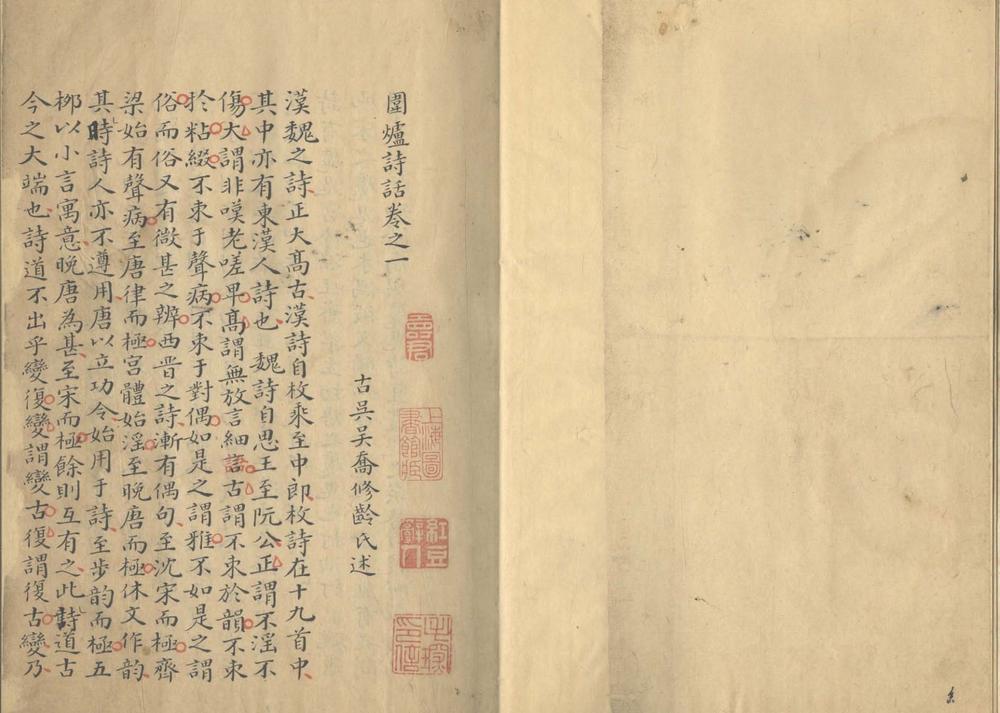 圍爐詩話卷之一
古吳吳喬修齡氏述
漢魏之詩正大高古漢詩自枚乘至中郎枚詩在十九首中
其中亦有東漢人詩也魏詩自思王至阮公正謂不淫不
傷大謂非嘆老嗟卑高謂無放言細語古謂不束於韻不束
於粘綴不束于聲病不束于對偶如是之謂雅不如是之謂
俗而俗又有微甚之辨西晋之詩漸有偶句至沈宋而極齊
梁始有聲病至唐律而極宮體始淫至晚唐而極休文作韵
其時詩人亦不遵用唐以立功令始用于詩至步韵而極五
桞以小言寓意晚唐為甚至宋而極餘則互有之此詩道古
今之大端也詩道不出乎變復變謂變古復謂復古變乃
上海圖書館藏
紅豆